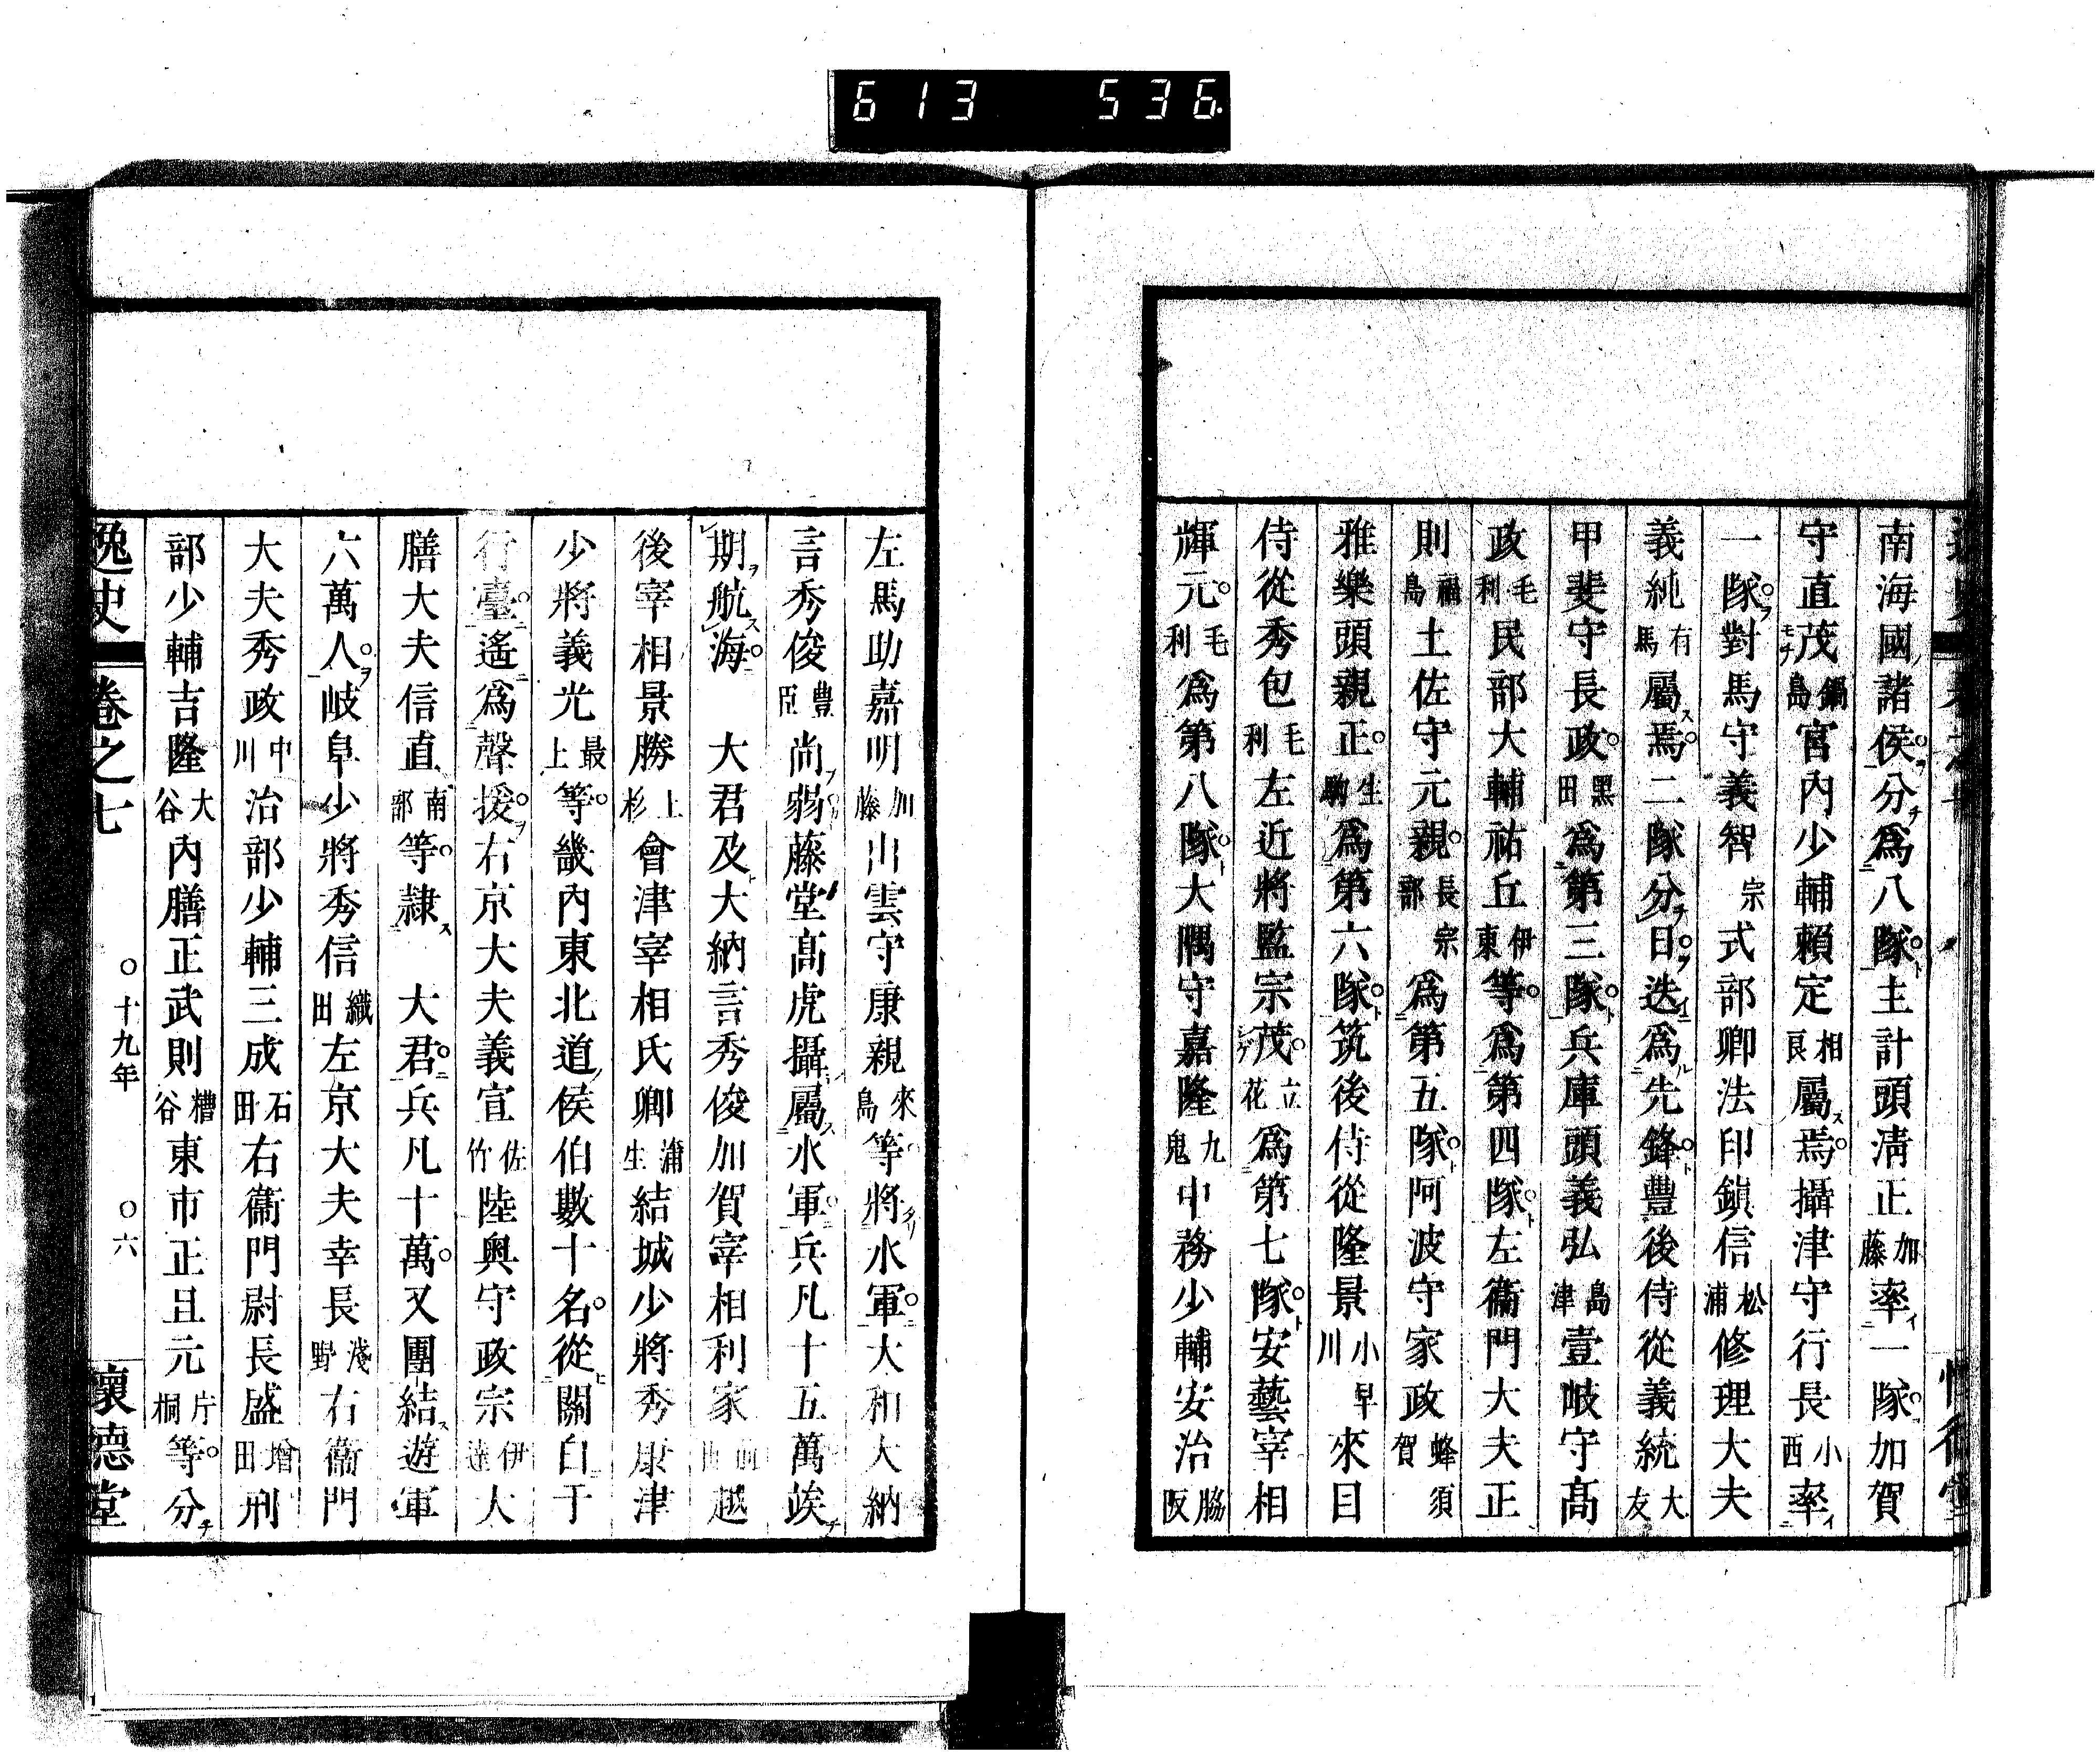 613 536
南海國ノ諸侯ヲ分チ爲八隊ト主計頭淸正加藤率イ一隊ヲ加賀
守直茂鍋島官內少輔賴定相良屬ス焉攝津守行長小西率イ
一隊ヲ對馬守義智宗式部卿法印鎭信松浦修理大夫
義純有馬屬ス焉二隊分ヲ日ヲ迭イニ爲ル先鋒ト豐後侍從義統大友
甲斐守長政黑田爲第三隊ト兵庫頭義弘島津壹岐守髙
政毛利民部大輔祐丘伊東等爲第四隊ト左衞門大夫正
則福島土佐守元親長宗部爲第五隊ト阿波守家政蜂須賀
雅樂頭親正生駒爲第六隊ト筑後侍從隆景小早川來目
侍從秀包毛利左近將監宗茂立花爲第七隊ト安藝宰相
輝元毛利爲第八隊ト大隅守嘉隆九鬼中務少輔安治脇阪
左馬助嘉明加藤出雲守康親來島等將タリ水軍ニ大和大納
言秀俊豐臣尚弱藤堂髙虎攝屬ス水軍ニ兵凡十五萬竢チ
期ヲ航ス海ニ 大君及ト大納言秀俊加賀宰相利家前田越
後宰相景勝上杉會津宰相氏卿蒲生結城少將秀康津
少將義光最上等畿內東北道ノ侯伯數十名從關白于
行臺ニ遙ニ爲聲援ヲ右京大夫義宣佐竹陸奧守政宗伊達大
膳大夫信直南部等隷ス 大君ニ兵凡十萬又團結ス遊軍
六萬人ヲ岐阜少將秀信織田左京大夫幸長淺野右衞門
大夫秀政中川治部少輔三成石田右衞門尉長盛增田刑
部少輔吉隆大谷內膳正武則糟谷東市正且元片桐等分チ
逸史 卷之七 〇十九年 〇六 懷德堂